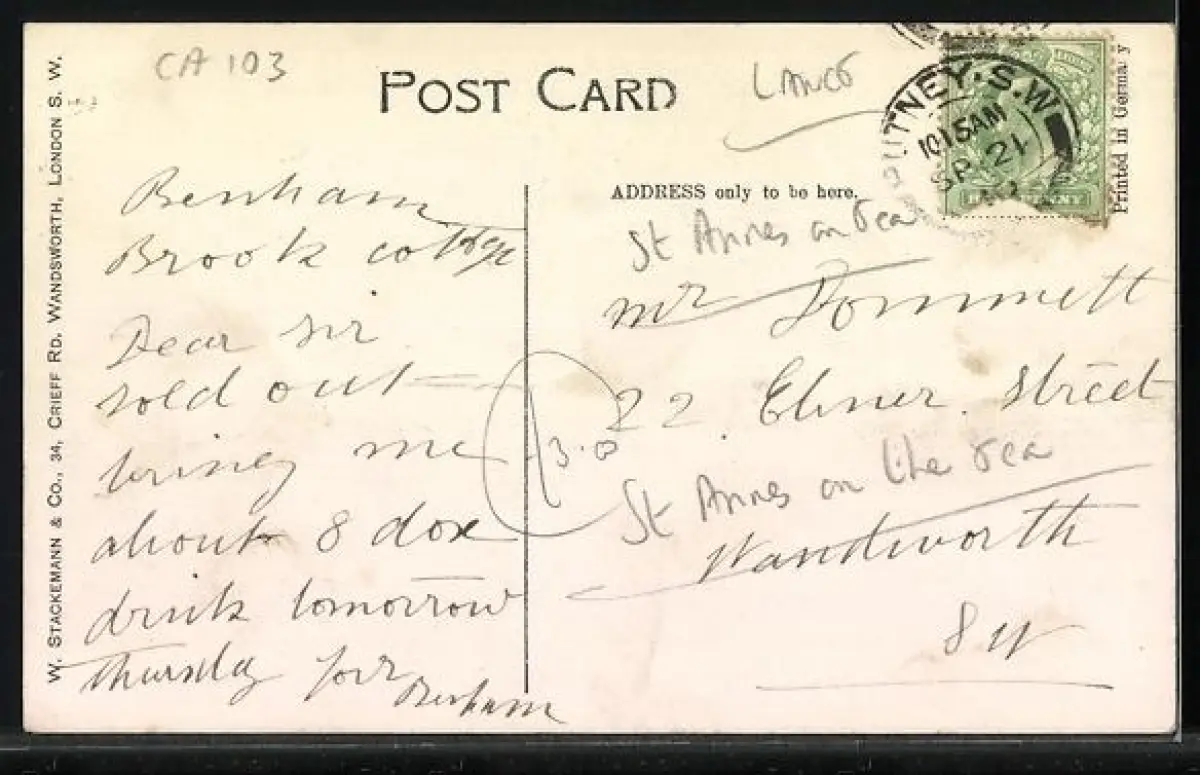 CA 103
POST CARD
LANCS
PUTNEY. S.W
10 15 AM
SP 21
Printed in Germany
W. STACKEMANN & CO., 34, CRIEFF RD. WANDSWORTH, LONDON S. W.
ADDRESS only to be here.
Benham
Brook cottage
Dear sir
sold out
bring me
about 8 dox
drink tomorrow
thursday
Benham
13.0
St Annes on sea
mr Dommett
22. Elsner. Street
St Annes on the sea
Wandworth
S W